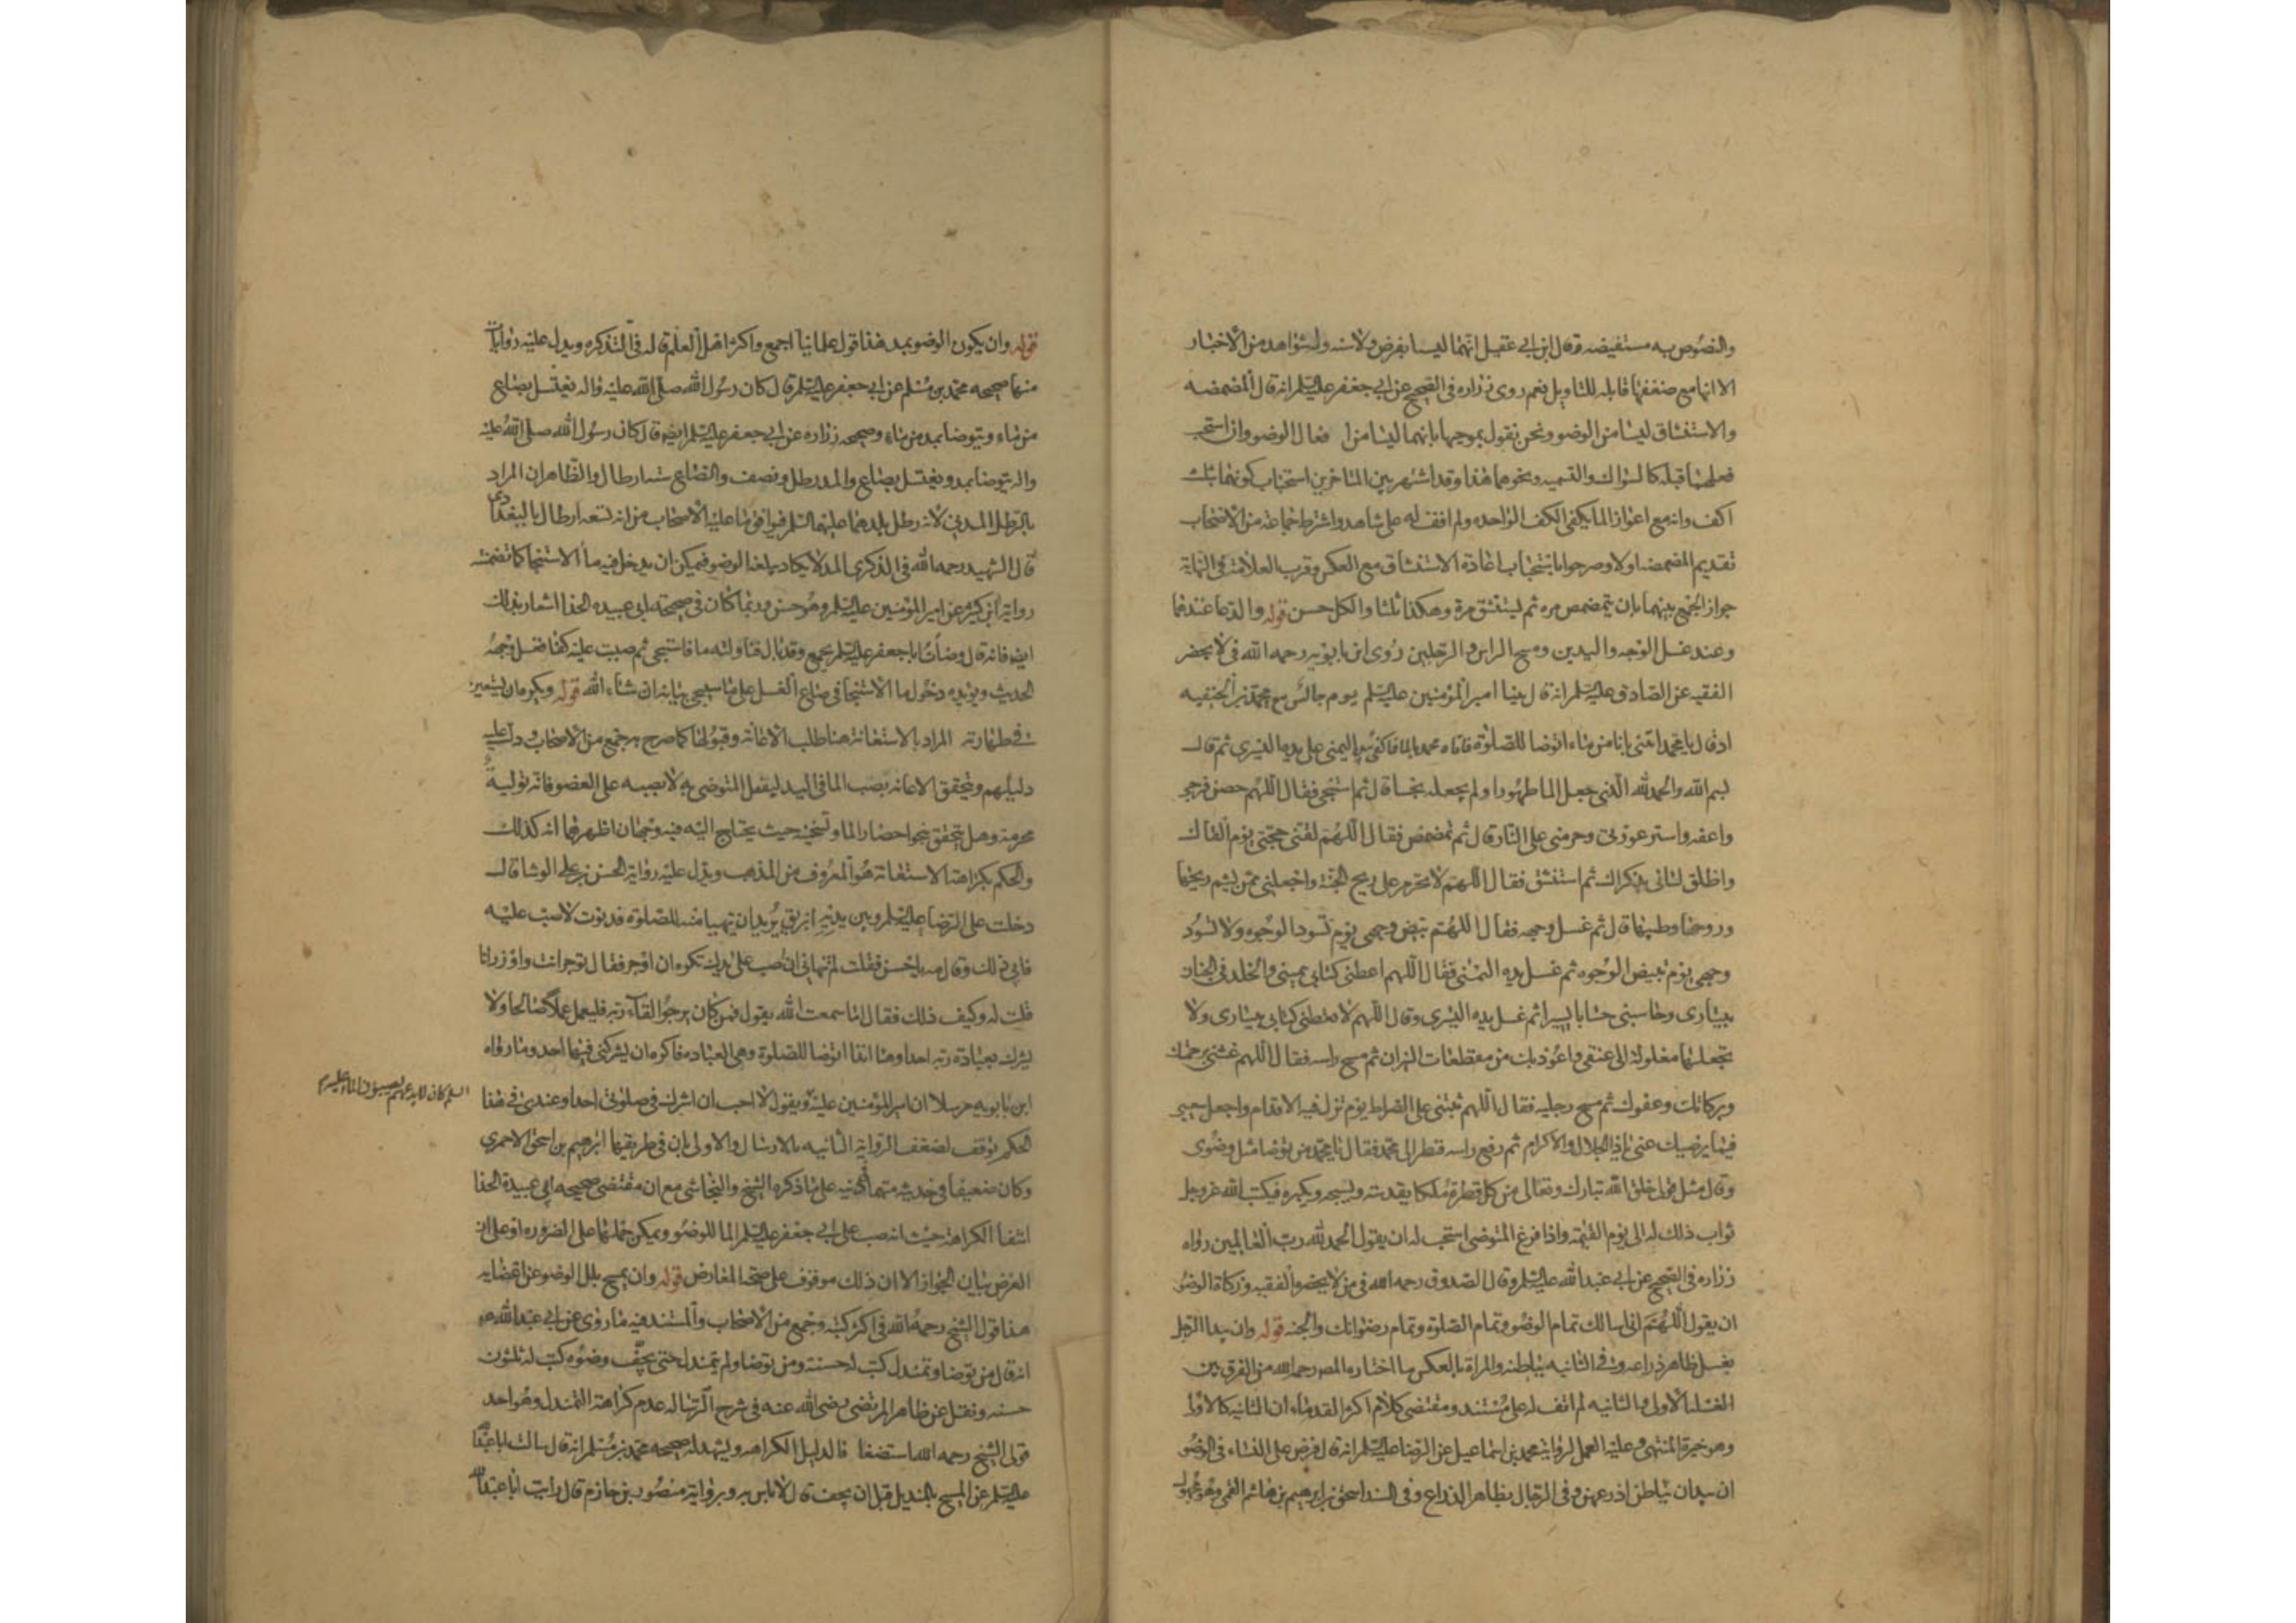 والنصوص به مستفيضه وقال ابن ابي عقيل انهما ليسا بفرض ولا سنه وله شواهد من الاخبار
الا انها مع ضعفها قابله للتاويل نعم روى زراره في الصحيح عن ابي جعفر عليه السلم انه قال المضمضه
والاستنشاق ليسا من الوضوء ونحن نقول بموجبها بانهما ليسا من افعال الوضوء وان استحب
فعلهما قبله كالسواك والتسميه ونحوهما هذا وقد اشتهر بين المتاخرين استحباب كونهما بثلث
اكف وانه مع اعواز الما يكفى الكف الواحده ولم اقف له على شاهد واشترط جماعه من الاصحاب
تقديم المضمضه اولا وصرحوا باستحباب اعادة الاستنشاق مع العكس وقرب العلامة في النهاية
جواز الجمع بينهما بان يتمضمض مره ثم يستنشق مرة وهكذا ثلثا والكل حسن قوله والدعا عندهما
وعند غسل الوجه واليدين ومسح الراس والرجلين روى ابن بابويه رحمه الله في لا يحضر
الفقيه عن الصادق عليه السلم انه قال بينا امير المؤمنين عليه السلم يوم جالس مع محمد بن الحنفيه
اذ قال يا محمد ائتنى بانا من ماء اتوضا للصلوة فاتاه محمد بالما فاكفى بيده اليمنى على يده اليسرى ثم قال
بسم الله والحمد لله الذي جعل الما طهورا ولم يجعله نجسا قال ثم استنجى فقال اللهم حصن فرجى
واعفه واستر عورتى وحرمنى على النار قال ثم تمضمض فقال اللهم لقنى حجتى يوم القاك
واطلق لسانى بذكراك ثم استنشق فقال اللهم لا تحرم على ريح الجنة واجعلنى ممن يشم ريحها
وروحها وطيبها قال ثم غسل وجهه فقال اللهم بيض وجهى يوم تسود الوجوه ولا تسود
وجهى يوم تبيض الوجوه ثم غسل يده اليمنى فقال اللهم اعطنى كتابى بيمينى والخلد في الجنان
بيسارى وحاسبنى حسابا يسيرا ثم غسل يده اليسرى وقال اللهم لا تعطنى كتابى بيسارى ولا
تجعلها مغلولة الى عنقى واعوذ بك من مقطعات النيران ثم مسح راسه فقال اللهم غشنى برحمتك
وبركاتك وعفوك ثم مسح رجليه فقال اللهم ثبتنى على الصراط يوم تزل فيه الاقدام واجعل سعيى
فيما يرضيك عنى يا ذا الجلال والاكرام ثم رفع راسه فنظر الى محمد فقال يا محمد من توضا مثل وضوى
وقال مثل قولى خلق الله تبارك وتعالى من كل قطرة ملكا يقدسه ويسبحه ويكبره فيكتب الله عز وجل
ثواب ذلك له الى يوم القيمة واذا فرغ المتوضى استحب له ان يقول الحمد لله رب العالمين رواه
زراره في الصحيح عن ابي عبد الله عليه السلم وقال الصدوق رحمه الله في من لا يحضره الفقيه وزكاة الوضو
ان يقول اللهم انى اسالك تمام الوضو وتمام الصلوة وتمام رضوانك والجنه قوله وان يبدا الرجل
بغسل ظاهر ذراعه وفى الثانيه بباطنه والمراة بالعكس ما اختاره المص رحمه الله من الفرق بين
الغسلة الاولى والثانيه لم اقف له على مستند ومقتضى كلام اكثر القدماء ان الثانيه كالاولى
وهو خيرة المنتهى وعليه العمل لرواية محمد بن اسماعيل عن الرضا عليه السلم انه قال فرض على النساء في الوضو
ان يبدان بباطن اذرعهن وفى الرجال بظاهر الذراع وفى السند اسحق بن ابرهيم بن هاشم القمى وهو مجهول
قوله وان يكون الوضو بمد هذا قول علمائنا اجمع واكثر اهل العلم قاله في التذكره ويدل عليه روايات
منها صحيحه محمد بن مسلم عن ابي جعفر عليه السلم قال كان رسول الله صلى الله عليه واله يغتسل بصاع
من ماء ويتوضا بمد من ماء وصحيحه زراره عن ابي جعفر عليه السلم ايضا قال كان رسول الله صلى الله عليه
واله يتوضا بمد ويغتسل بصاع والمد رطل ونصف والصاع سته ارطال والظاهر ان المراد
بالرطل المدنى لانه رطل بلدهما عليهما السلم فيوافق ما عليه الاصحاب من انه تسعه ارطال بالبغدادى
قال الشهيد رحمه الله في الذكرى المد لا يكاد يبلغه الوضو فيمكن ان يدخل فيه ما الاستنجا كما تضمنته
رواية ابن كثير عن امير المؤمنين عليه السلم وهو حسن وربما كان في صحيحة ابي عبيده الحذا اشعار بذلك
ايضا فانه قال وضات ابا جعفر عليه السلم بجمع وقد بال فناولته ما فاستنجى ثم صببت عليه كفا فغسل وجهه
الحديث ويؤيده دخول ما الاستنجا في صاع الغسل على ما سيجي بيانه ان شاء الله قوله ويكره ان يستعين
في طهارته المراد بالاستعانة هنا طلب الاعانة وقبولها كما صرح به جمع من الاصحاب ودل عليه
دليلهم ويتحقق الاعانه بصب الما في اليد ليغسل المتوضى به لا بصبه على العضو فانه تولية
محرمة وهل يتحقق بنحو احضار الما وتسخينه حيث يحتاج اليه فيه وجهان اظهرهما انه كذلك
والحكم بكراهة الاستعانة هو المعروف من المذهب ويدل عليه رواية الحسن بن على الوشا قال
دخلت على الرضا عليه السلم وبين يديه ابريق يريد ان يتهيا منه للصلوة فدنوت لاصب عليه
فابى ذلك وقال مه يا حسن فقلت لم تنهانى ان اصب على يديك تكره ان اوجر فقال توجر انت واوزر انا
قلت له وكيف ذلك فقال اما سمعت الله يقول فمن كان يرجو القاء ربه فليعمل عملا صالحا ولا
يشرك بعبادة ربه احدا وها انا ذا اتوضا للصلوة وهى العباده فاكره ان يشركنى فيها احد وما رواه
ابن بابويه مرسلا ان امير المؤمنين عليه ويقول لا احب ان اشرك في صلوتى احدا وعندى في هذا
السلم كان لا يدعهم يصبون الماء عليه
الحكم توقف لضعف الرواية الثانيه بالارسال والاولى بان في طريقها ابرهيم بن اسحق الاحمرى
وكان ضعيفا في حديثه متهما في دينه على ما ذكره الشيخ والنجاشى مع ان مقتضى صحيحه ابي عبيدة الحذا
انتفا الكراهة حيث انه صب على ابي جعفر عليه السلم الما للوضو ويمكن حملها على الضروره او على ان
الغرض بيان الجواز الا ان ذلك موقوف على صحة المعارض قوله وان يمسح بلل الوضو عن اعضايه
هذا قول الشيخ رحمه الله في اكثر كتبه وجمع من الاصحاب والمستند فيه ما روى عن ابي عبد الله ع
انه قال من توضا وتمندل كتب له حسنة ومن توضا ولم يتمندل حتى يجف وضوه كتب له ثلثون
حسنه ونقل عن ظاهر المرتضى رضى الله عنه في شرح الرساله عدم كراهة التمندل وهو احد
قولى الشيخ رحمه الله استضعافا لدليل الكراهه ويشهد له صحيحه محمد بن مسلم انه قال سالت ابا عبد الله
عليه السلم عن المسح بالمنديل قبل ان يجف قال لا باس به وبرواية منصور بن حازم قال رايت ابا عبد الله